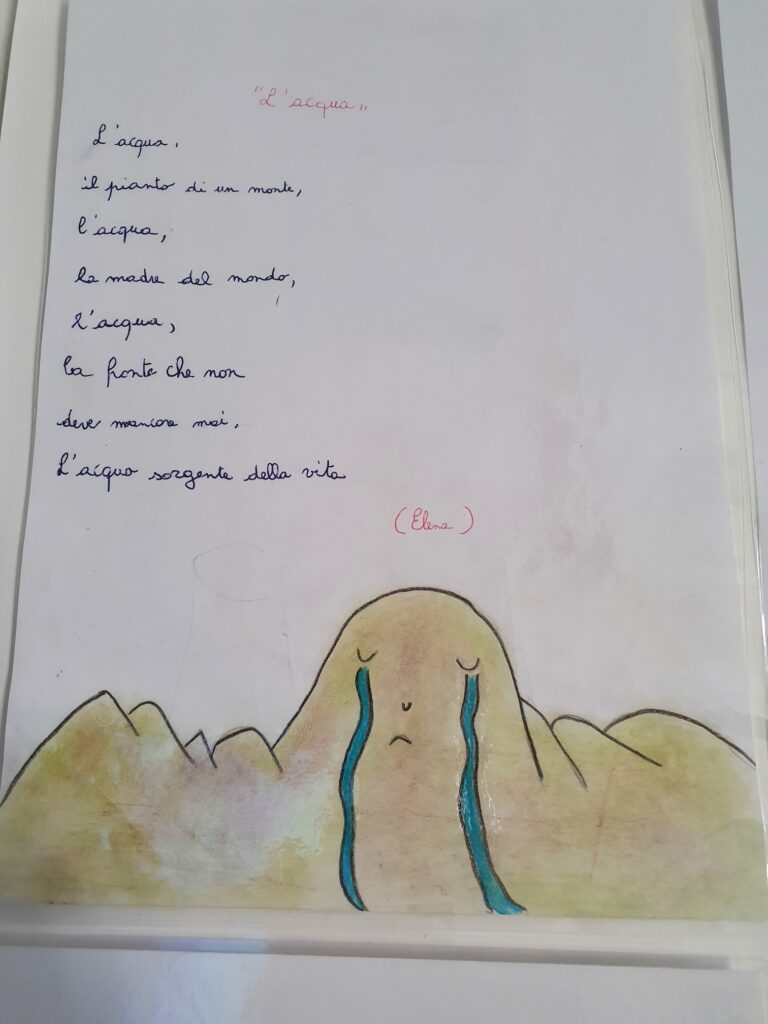 "L'acqua"
L'acqua,
il pianto di un monte,
l'acqua,
la madre del mondo,
l'acqua,
la fronte che non
deve mancare mai.
L'acqua sorgente della vita
(Elena)